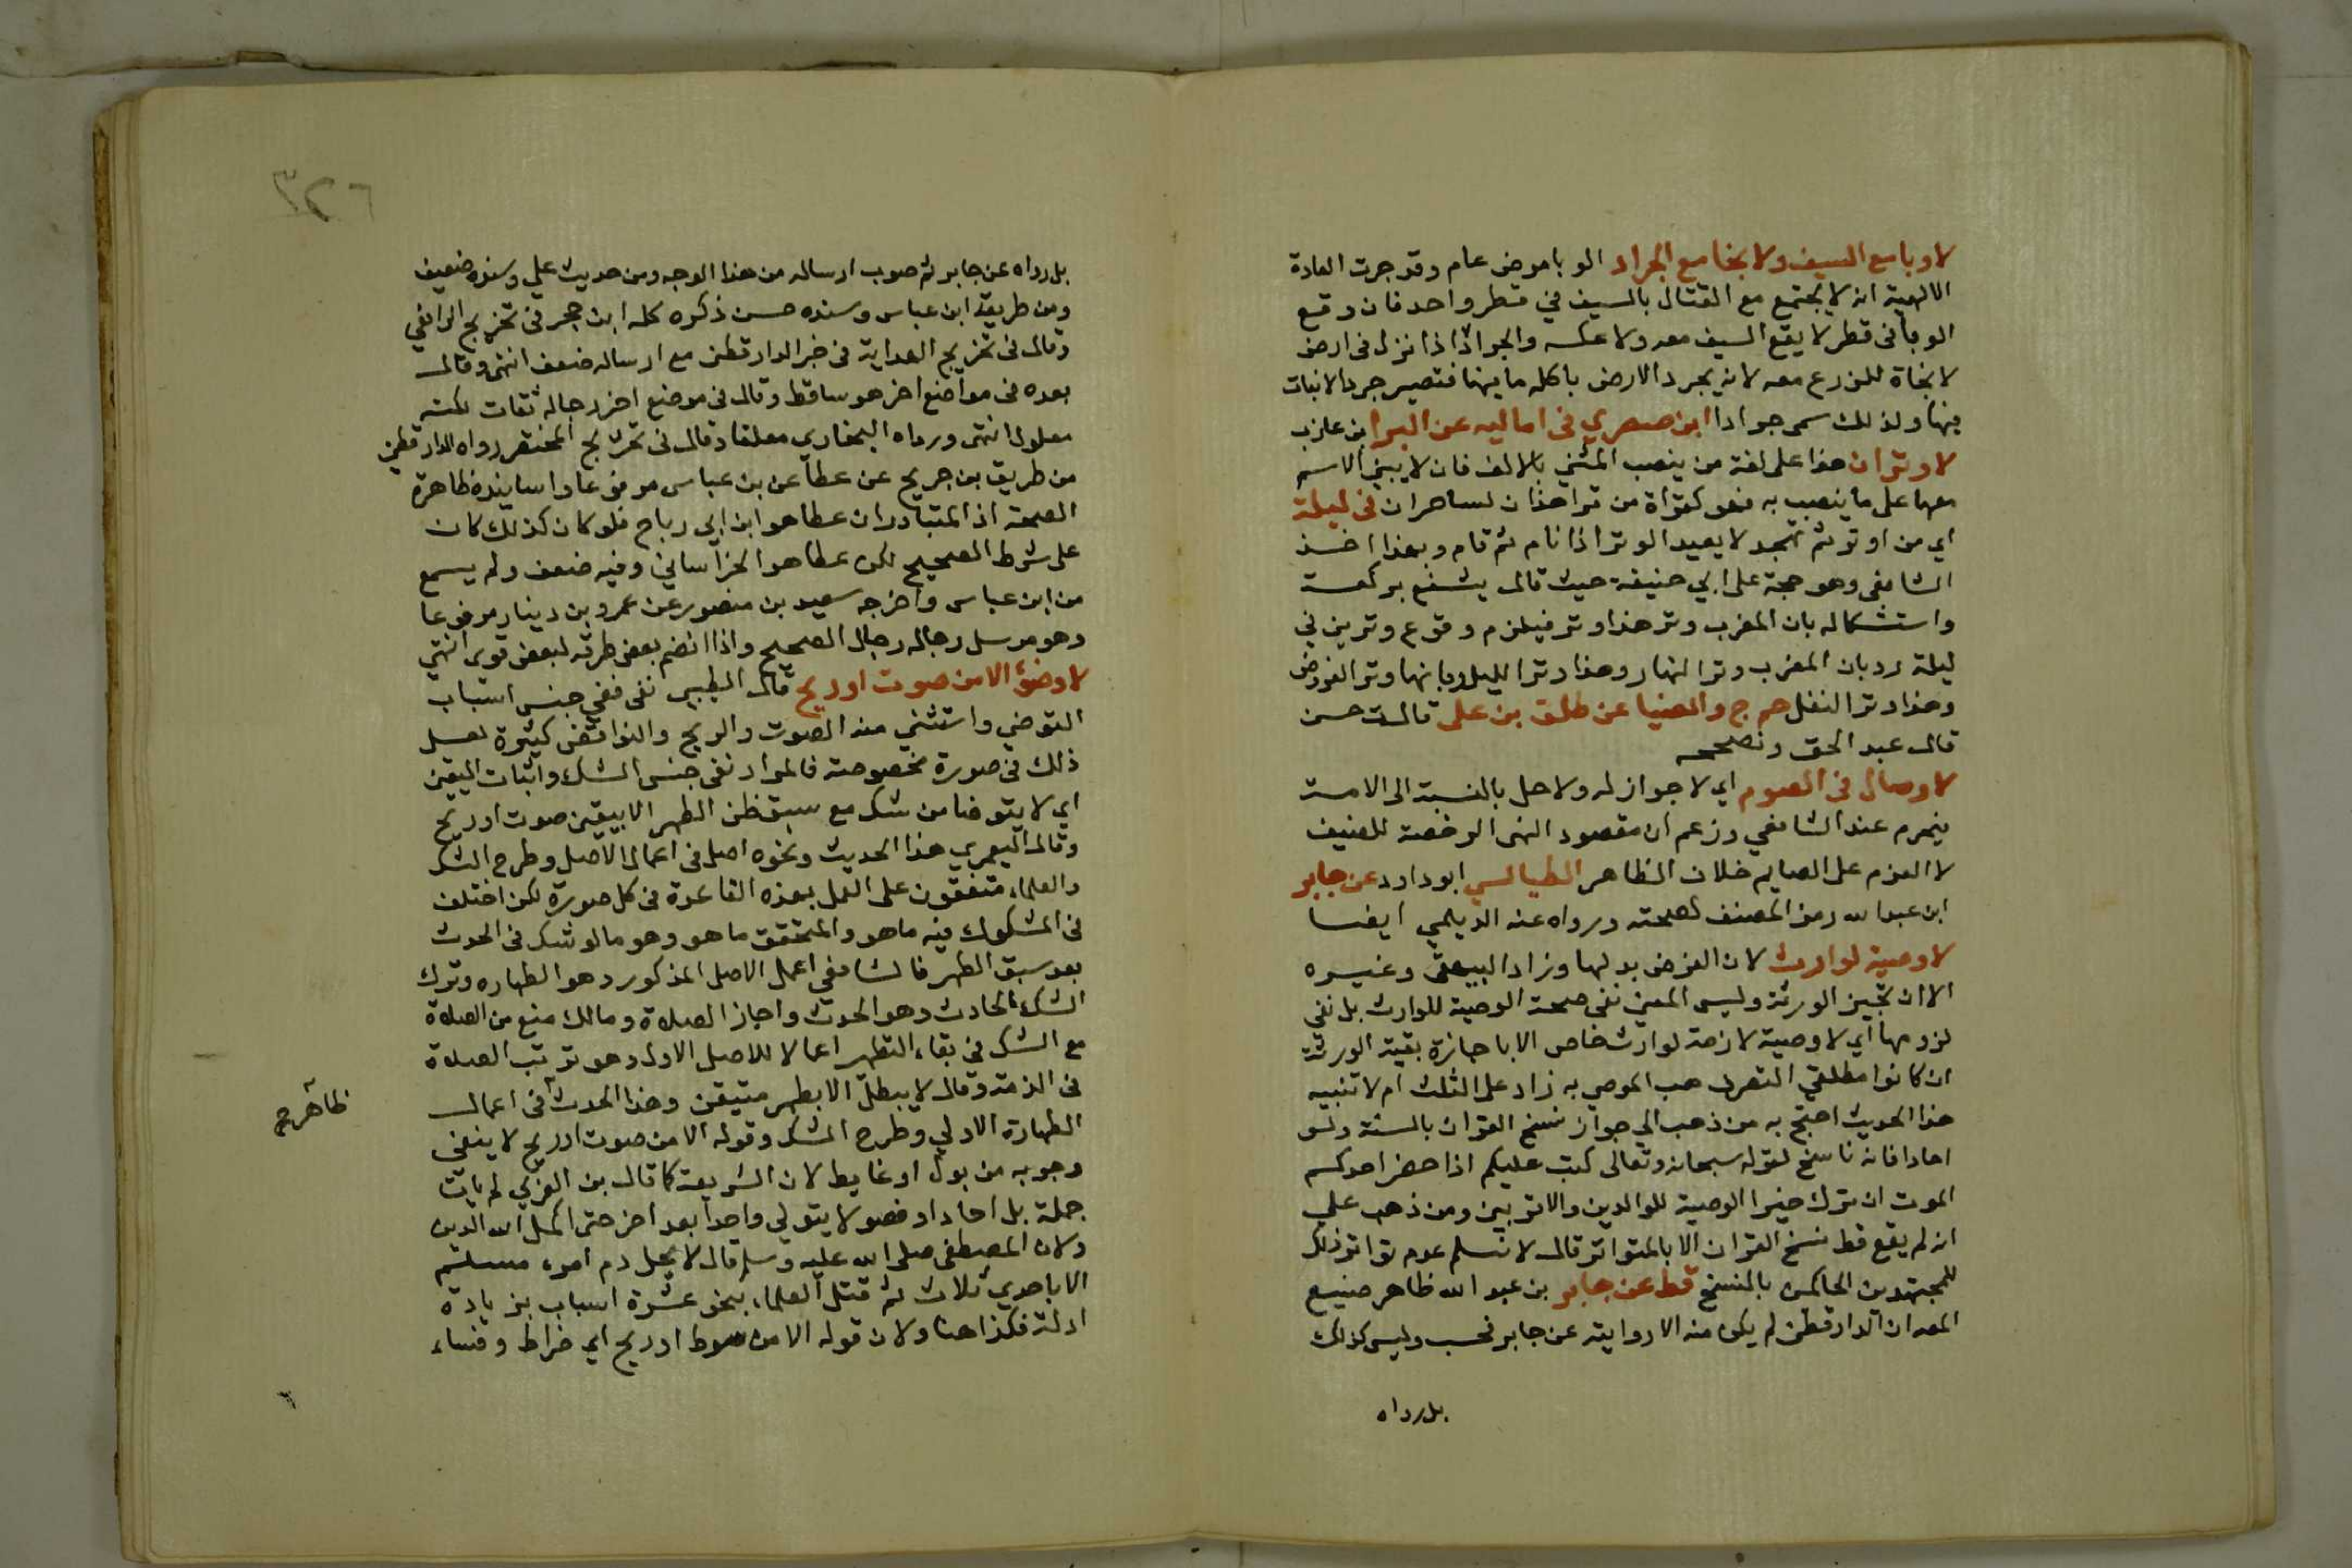 لا وباء مع السيف ولا نجا مع الجراد الوبا مرض عام وقد جرت العادة
الالهية انه لا يجتمع مع القتال بالسيف في قطر واحد فان وقع
الوبأ في قطر لا يقع السيف معه ولا عكسه والجراد اذا نزل في ارض
لا نجاة للزرع معه لانه يجرد الارض باكله ما فيها فتصير جردا لا نبات
فيها ولذلك سمى جرادا ابن صصري في اماليه عن البرا بن عازب
لا وتران هذا على لغة من ينصب المثنى بالالف فان لا يبنى الاسم
معها على ما ينصب به فهو كقراة من قرا هذان لساحران في ليلة
اي من اوتر ثم تهجد لا يعيد الوتر اذا نام ثم قام وبهذا اخذ
الشافعي وهو حجة على ابي حنيفة حيث قال يشفع بركعة
واستشكاله بان المغرب وتر هذا وتر فيلزم وقوع وترين في
ليلة رد بان المغرب وتر النهار وهذا وتر الليل وبانها وتر الفرض
وهذا وتر النفل حم ج والضيا عن طلق بن على قال ت حسن
قال عبد الحق وتصححه
لا وصال في الصوم اي لا جواز له ولا حل بالنسبة الى الامة
فيحرم عند الشافعي وزعم ان مقصود النهي الرخصة للضيف
لا العزم على الصايم خلاف الظاهر الطيالسي ابو داود عن جابر
ابن عبد الله رمز المصنف لصحته ورواه عنه الديلمي ايضا
لا وصية لوارث لان الفرض بدلها وزاد البيهقي وغيره
الا ان تجيز الورثة وليس المعنى نفى صحة الوصية للوارث بل نفى
لزومها اي لا وصية لازمة لوارث خاص الا باجازة بقية الورثة
ان كانوا مطلقي التصرف هب الموصي به زاد على الثلث ام لا تنبيه
هذا الحديث احتج به من ذهب الى جواز نسخ القران بالسنة ولو
احادا فانه ناسخ لقوله سبحانه وتعالى كتب عليكم اذا حضر احدكم
الموت ان ترك خيرا الوصية للوالدين والاقربين ومن ذهب على
انه لم يقع قط نسخ القران الا بالمتواتر قال لا نسلم عدم تواتر ذلك
للمجتهدين الحاكمين بالنسخ قط عن جابر بن عبد الله ظاهر صنيع
المص ان الدارقطني لم يكن منه الا روايته عن جابر فحسب وليس كذلك
بل رواه
٣٢٦
بل رواه عن جابر ثم صوب ارساله من هذا الوجه ومن حديث علي وسنده ضعيف
ومن طريقه ابن عباس وسنده حسن ذكره كله ابن حجر في تخريج الرافعي
وقال في تخريج الهداية في خبر الدارقطني مع ارساله ضعف انتهى وقال
بعده في مواضع اخر هو ساقط وقال في موضع اخر رجاله ثقات لكنه
معلول انتهى ورواه البخاري معلقا وقال في تخريج المختصر رواه الدارقطني
من طريق بن جريح عن عطا عن بن عباس مرفوعا واسانيده ظاهرة
الصحة اذ المتبادر ان عطا هو ابن ابي رباح فلو كان كذلك كان
على شرط الصحيح لكن عطا هو الخراساني وفيه ضعف ولم يسمع
من ابن عباس واخرجه سعيد بن منصور عن عمرو بن دينار مرفوعا
وهو مرسل رجاله رجال الصحيح واذا انضم بعض طرقه لبعض قوى انتهى
لا وضؤ الا من صوت او ريح قال الطيبي نفى ففى جنس اسباب
التوضي واستثنى منه الصوت والريح والنواقض كثيرة لعل
ذلك في صورة مخصوصة فالمراد نفى جنس الشك واثبات اليقين
اي لا يتوضا من شك مع سبق ظن الطهر الا بيقين صوت او ريح
وقال اليعمري هذا الحديث ونحوه اصل في اعمال الاصل وطرح الشك
والعلماء متفقون على العمل بهذه القاعدة في كل صورة لكن اختلف
في المشكوك فيه ما هو والمتحقق ما هو وهو ما لو شك في الحدث
بعد سبق الطهر فالشافعي اعمل الاصل المذكور وهو الطهاره وترك
الشك الحادث وهو الحدث واجاز الصلاة ومالك منع من الصلاة
مع الشك في بقاء التطهر اعمالا للاصل الاول وهو ترتب الصلاة
في الذمة وقال لا يبطل الا بطهر متيقن وهذا الحدث في اعمال
ظاهر صح
الطهارة الاولي وطرح الشك وقوله الا من صوت او ريح لا ينفى
وجوبه من بول او غايط لان الشريعة كما قال بن العربي لم يات
جملة بل احادا وفصولا يتولي واحدا بعد اخر حتى اكمل الله الدين
ولان المصطفى صلى الله عليه وسلم قال لا يحل دم امرء مسلم
الا باحدي ثلاث ثم قتل العلماء بنحو عشرة اسباب بزيادة
ادلة فكذا هنا ولان قوله الا من صوط او ريح اي ضراط وفساء